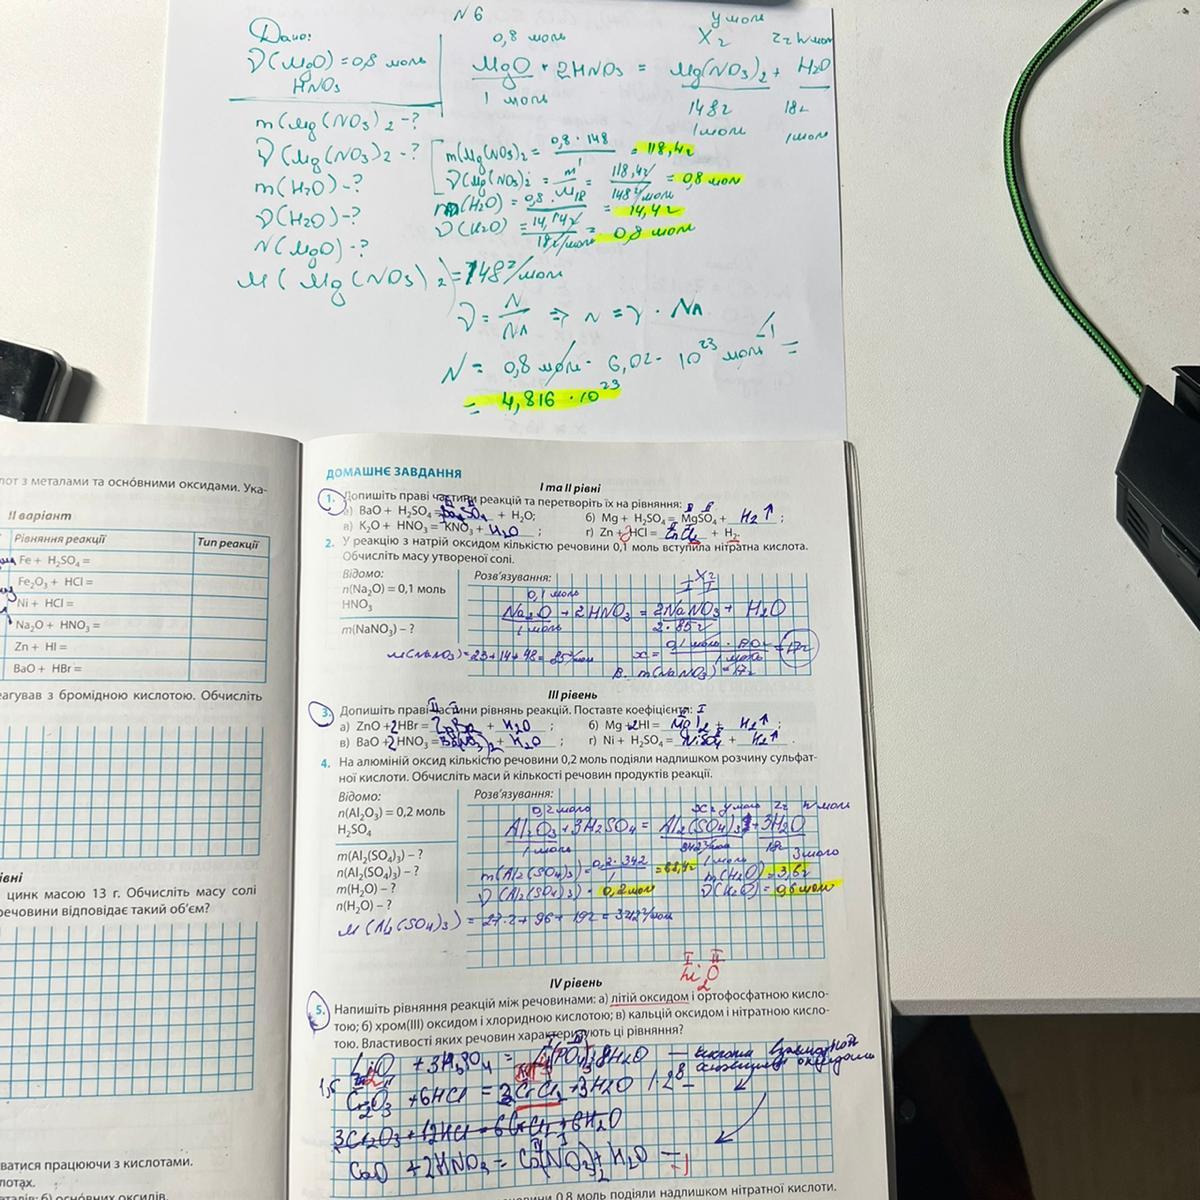 N 6
Дано:
ν(MgO) = 0,8 моль
HNO₃
m(Mg(NO₃)₂ -?
ν(Mg(NO₃)₂ -?
m(H₂O) -?
ν(H₂O) -?
N(MgO) -?
0,8 моль X г y моль
MgO + 2HNO₃ = Mg(NO₃)₂ + H₂O
1 моль 148г 18г
1 моль 1 моль
m(Mg(NO₃)₂ = 0,8 · 148 = 118,4г
ν(Mg(NO₃)₂ = m/M = 118,4г / 148 г/моль = 0,8 моль
m(H₂O) = 0,8 · 18 = 14,4г
ν(H₂O) = / 18г/моль = 0,8 моль
M(Mg(NO₃)₂) = 148 г/моль
ν = N/NA => N = ν · NA
N = 0,8 моль · 6,02 · 10²³ моль⁻¹ =
= 4,816 · 10²³
лот з металами та осно́вними оксидами. Ука-
II варіант
Рівняння реакції Тип реакції
Fe + H₂SO₄ =
Fe₂O₃ + HCl =
Ni + HCl =
Na₂O + HNO₃ =
Zn + HI =
BaO + HBr =
еагував з бромідною кислотою. Обчисліть
івні
цинк масою 13 г. Обчисліть масу солі
речовини відповідає такий об'єм?
ватися працюючи з кислотами.
лотах.
ДОМАШНЄ ЗАВДАННЯ
I та II рівні
1. Допишіть праві частини реакцій та перетворіть їх на рівняння:
а) BaO + H₂SO₄ = BaSO₄ + H₂O; б) Mg + H₂SO₄ = MgSO₄ + H₂↑ ;
в) K₂O + HNO₃ = KNO₃ + H₂O ; г) Zn + 2HCl = ZnCl₂ + H₂.
2. У реакцію з натрій оксидом кількістю речовини 0,1 моль вступила нітратна кислота.
Обчисліть масу утвореної солі.
Відомо: Розв'язування:
n(Na₂O) = 0,1 моль
HNO₃
m(NaNO₃) – ?
0,1 моль X г
Na₂O + 2HNO₃ = 2NaNO₃ + H₂O
1 моль 2·85 г
M(NaNO₃) = 23 + 14 + 48 = 85 г/моль
x = 17г
В. m(NaNO₃) = 17г
III рівень
3. Допишіть праві частини рівнянь реакцій. Поставте коефіцієнти:
а) ZnO + 2HBr = ZnBr₂ + H₂O ; б) Mg + 2HI = MgI₂ + H₂↑ ;
в) BaO + 2HNO₃ = Ba(NO₃)₂ + H₂O ; г) Ni + H₂SO₄ = NiSO₄ + H₂↑ .
4. На алюміній оксид кількістю речовини 0,2 моль подіяли надлишком розчину сульфат-
ної кислоти. Обчисліть маси й кількості речовин продуктів реакції.
Відомо: Розв'язування:
n(Al₂O₃) = 0,2 моль
H₂SO₄
m(Al₂(SO₄)₃) – ?
n(Al₂(SO₄)₃) – ?
m(H₂O) – ?
n(H₂O) – ?
0,2 моль x г y моль z г
Al₂O₃ + 3H₂SO₄ = Al₂(SO₄)₃ + 3H₂O
1 моль 342г/моль 18г
1 моль 3 моль
m(Al₂(SO₄)₃) = 0,2 · 342 / 1 = 68,4г m(H₂O) = 3,6г
ν(Al₂(SO₄)₃) = 0,2 моль ν(H₂O) = 0,6 моль
M(Al₂(SO₄)₃) = 27·2 + 96 + 192 = 342г/моль
IV рівень
Li₂O
5. Напишіть рівняння реакцій між речовинами: а) літій оксидом і ортофосфатною кисло-
тою; б) хром(III) оксидом і хлоридною кислотою; в) кальцій оксидом і нітратною кисло-
тою. Властивості яких речовин характеризують ці рівняння?
Cr₂O₃ + 6HCl = 2CrCl₃ + 3H₂O
CaO + 2HNO₃ = Ca(NO₃)₂ + H₂O
овини 0,8 моль подіяли надлишком нітратної кислоти.